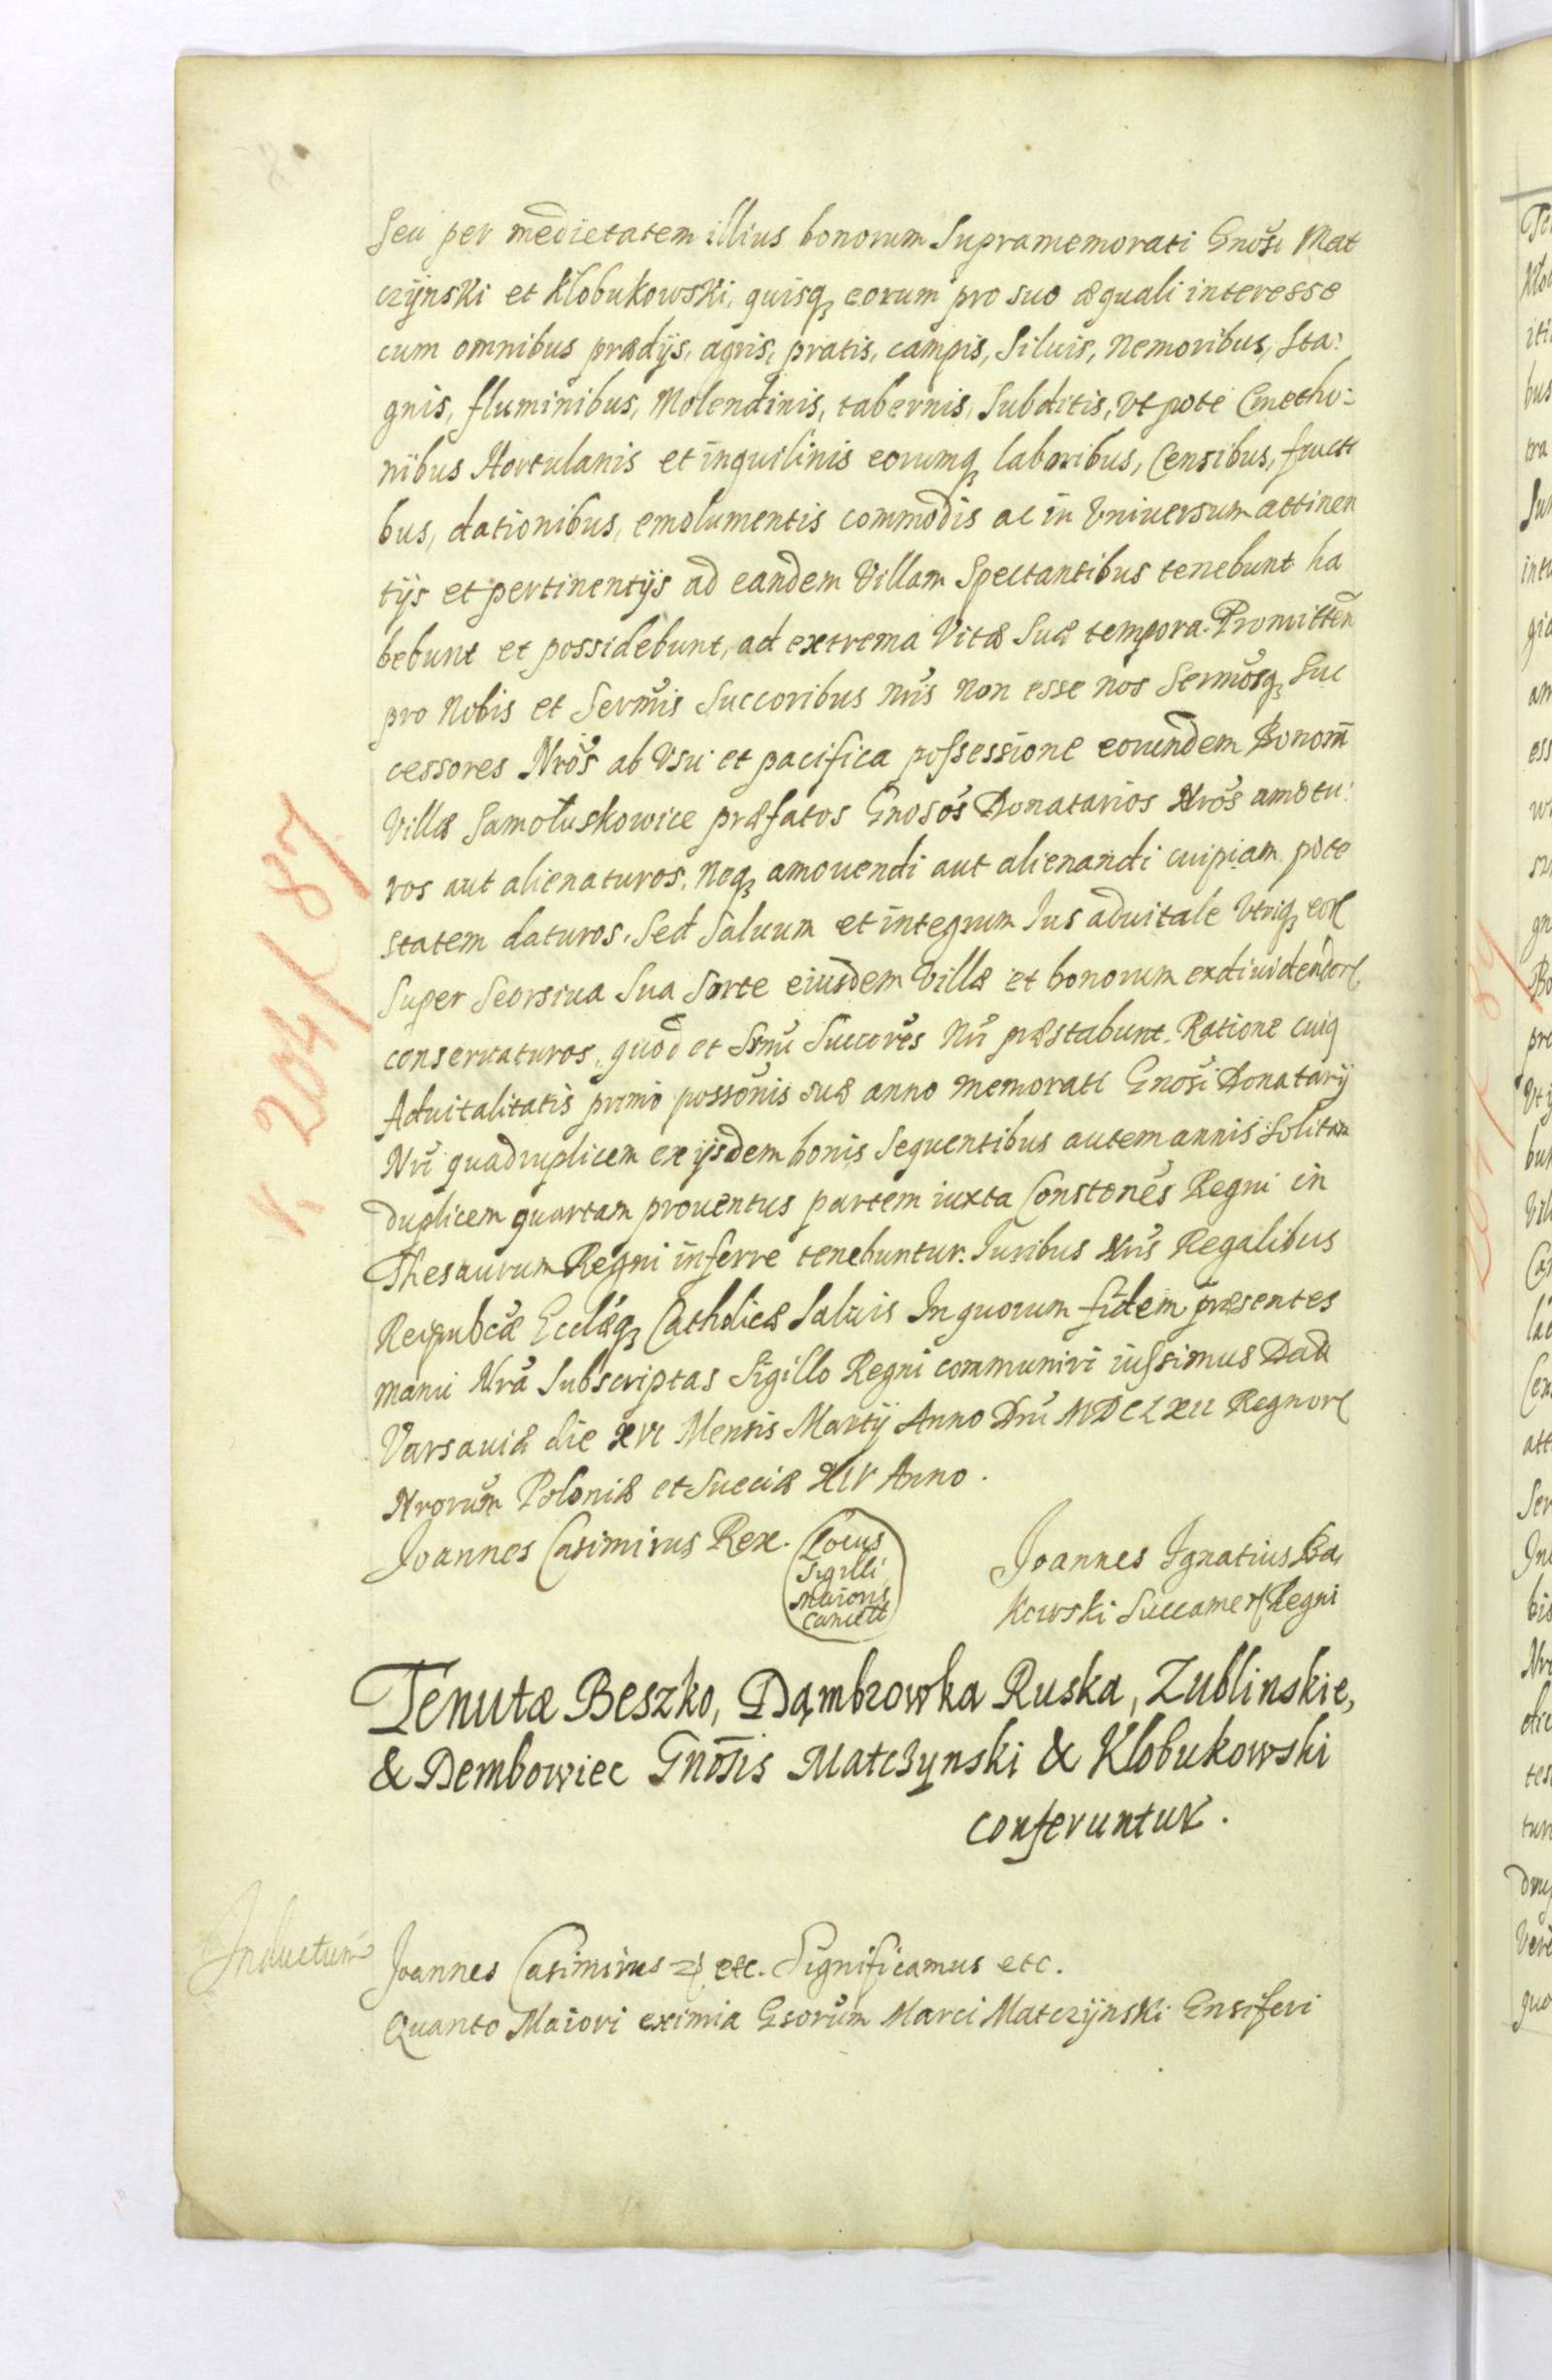 seu per medietatem illius bonorum Supramemorati Gnosi Mat
czÿnski et Kłobukowski, quisq eorum pro suo æquali interesse
cum omnibus prædijs, agris, pratis, campis, Siluis, Nemoribus, Sta:
gnis, fluminibus, Molendinis, tabernis, Subditis, Vt pote Cmetho:
nibus Hortulanis et inquilinis eorumq laboribus, Censibus, fructi
bus, dationibus, emolumentis commodis ac in Vniuersum attinen
tijs et pertinentijs ad eandem Villam Spectantibus tenebunt ha
bebunt et possidebunt, ad extrema Vitæ Suæ tempora. Promitten
pro Nobis et Sermis Succoribus Nris Non esse nos Sermosq Suc
cessores Nros ab Vsu et pacifica possessione eorundem Bonorm
Villæ Samołuskowice præfatos Gnosos Donatarios Nros amotu:
ros aut alienaturos, Neq amouendi aut alienandi cuipiam pote
statem daturos. Sed Saluum et integrum Ius aduitale Vtriq eor
Super Seorsiua Sua Sorte eiusdem Villæ et bonorum exdiuidendor
conseruaturos, quod et Srmi Succores Nri præstabunt. Ratione cuiq
Aduitalitatis primo possonis suæ anno memorati Gnosi Donatarij
Nri quadruplicem ex ijsdem bonis Sequentibus autem annis Solitam
duplicem quartam prouentus partem iuxta Constones Regni in
Thesaurum Regni inferre tenebuntur. Iuribus Nris Regalibus
Reipubcæ Ecclæq Catholicæ Saluis In quorum fidem præsentes
manu Nra Subscriptas Sigillo Regni communiri iussimus Datt
Varsauiæ die XVI Mensis Martij Anno Dni MDCLXII Regnor
Nrorum Poloniæ et Sueciæ XIV Anno.
Joannes Casimirus Rex. Locus
Sigilli
Maioris
Cancell
Joannes Ignatius Bą
kowski Succamer Regni
Tenutæ Beszko, Dąmbrowka Ruska, Zublinskie,
& Dembowiec Gnosis Matczynski & Klobukowski
conferuntur.
Inductum
Joannes Casimirus etc. Significamus etc.
Quanto Maiori eximia Gsorum Marci Matczÿnski Ensiferi
v. 204/87